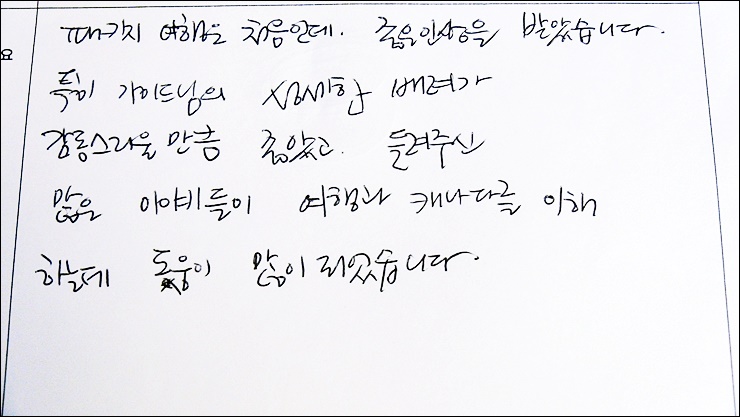 패키지 여행은 처음인데. 좋은인상을 받았습니다.
요
특히 가이드님의 섬세한 배려가
감동스러울 만큼 좋았고. 들려주신
많은 이야기들이 여행과 캐나다를 이해
하는데 도움이 많이 되었습니다.